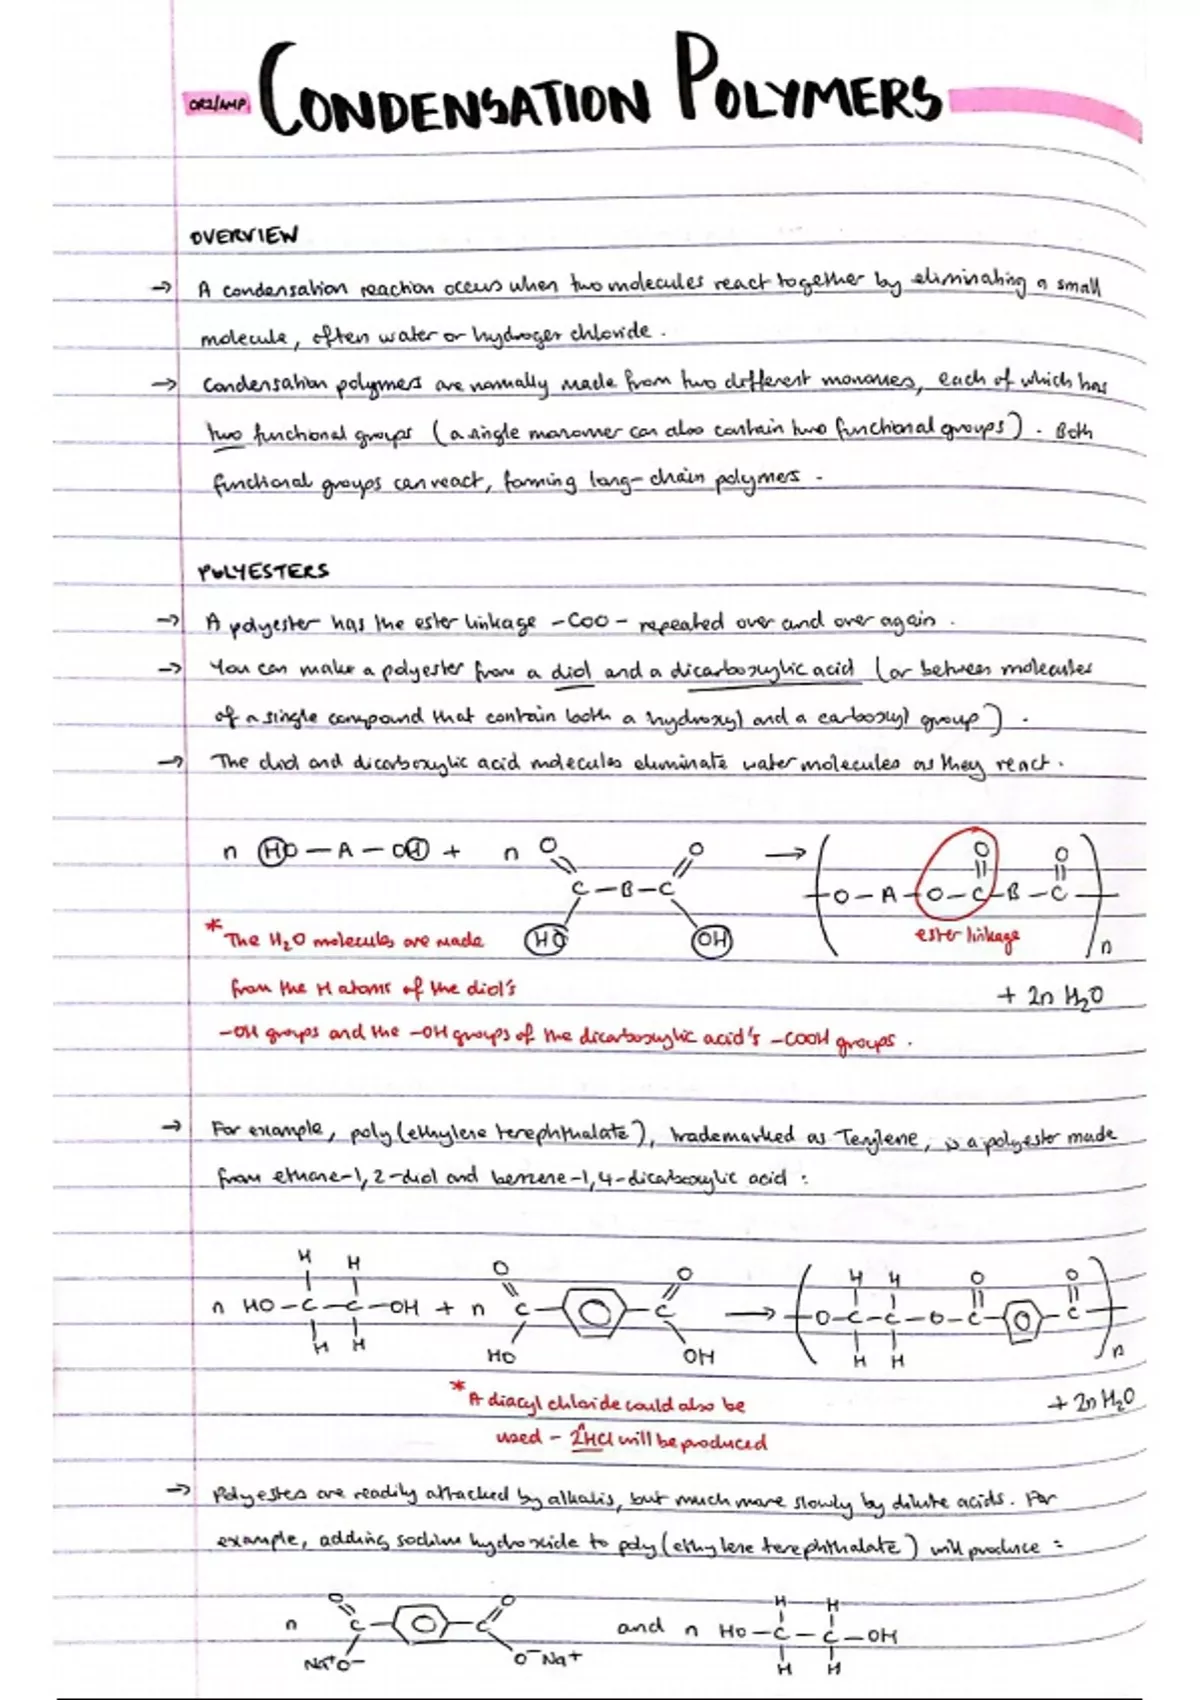 OR2/AMP CONDENSATION POLYMERS
OVERVIEW
→ A condensation reaction occurs when two molecules react together by eliminating a small
molecule, often water or hydrogen chloride.
→ Condensation polymers are normally made from two different monomers, each of which has
two functional groups (a single monomer can also contain two functional groups). Both
functional groups can react, forming long-chain polymers.
POLYESTERS
→ A polyester has the ester linkage -COO- repeated over and over again.
→ You can make a polyester from a diol and a dicarboxylic acid (or between molecules
of a single compound that contain both a hydroxyl and a carboxyl group).
→ The diol and dicarboxylic acid molecules eliminate water molecules as they react.
O O O O
n HO — A — OH + n → O — A — O — C — B — C
C — B — C
* The H2O molecules are made HO OH ester linkage n
from the H atoms of the diol's + 2n H2O
-OH groups and the -OH groups of the dicarboxylic acid's -COOH groups.
→ For example, poly(ethylene terephthalate), trademarked as Terylene, is a polyester made
from ethane-1,2-diol and benzene-1,4-dicarboxylic acid:
H H O O H H O O
n HO — C — C — OH + n C C → O — C — C — O — C C
H H HO OH H H n
* A diacyl chloride could also be + 2n H2O
used - 2nHCl will be produced
→ Polyesters are readily attacked by alkalis, but much more slowly by dilute acids. For
example, adding sodium hydroxide to poly(ethylene terephthalate) will produce:
O O H H
n C C and n HO — C — C — OH
Na+O- O-Na+ H H